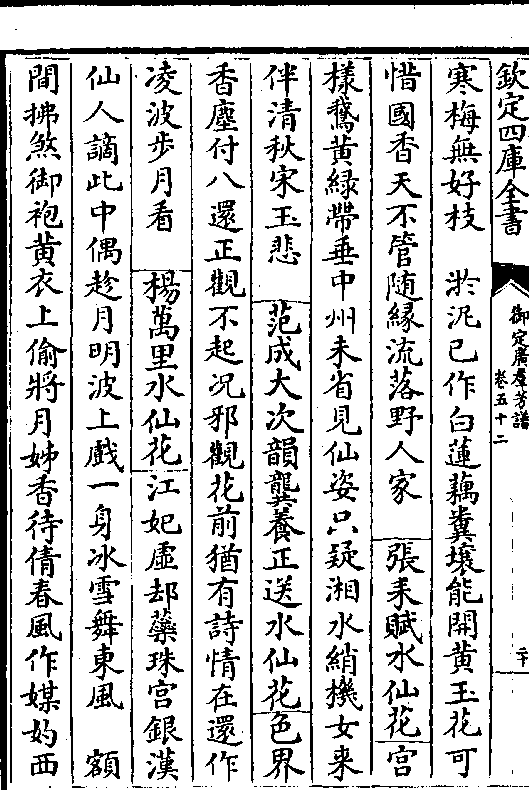 欽定四庫全書
御定廣羣芳譜
卷五十二
二十
寒梅無好枝　淤泥已作白蓮藕糞壤能開黃玉花可
惜國香天不管隨緣流落野人家　張耒賦水仙花宮
樣鵞黃緑帶垂中州未省見仙姿只疑湘水綃機女來
伴清秋宋玉悲　范成大次韻龔養正送水仙花色界
香塵付八還正觀不起况邪觀花前猶有詩情在還作
凌波步月看　楊萬里水仙花江妃虛却蘂珠宮銀漢
仙人謫此中偶趁月明波上戲一身冰雪舞東風　額
間拂煞御袍黃衣上偷將月姊香待倩春風作媒妁西